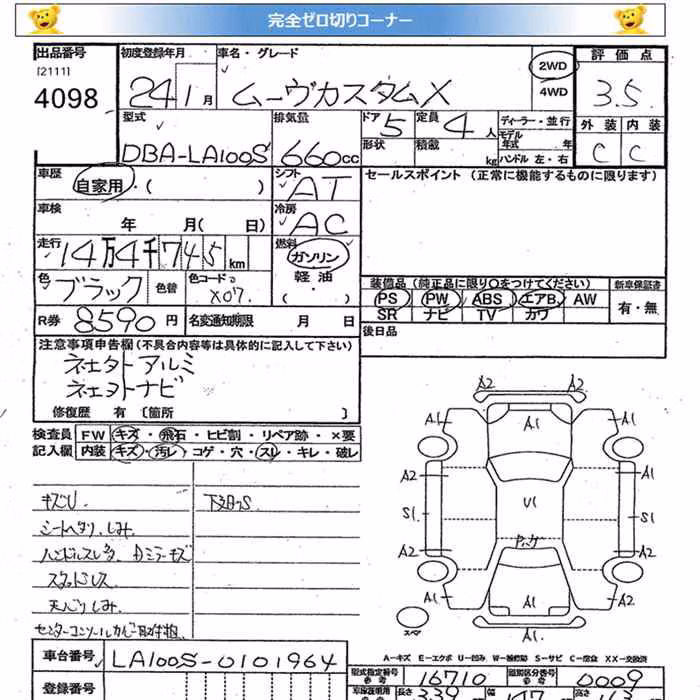 完全ゼロ切りコーナー
出品番号 初度登録年月 車名・グレード 評価点
[2111]
4098 24 1月 ムーヴカスタムX 2WD 4WD 3.5
型式 排気量 ドア 5 定員 4人 ディーラー・並行 外装 内装
モデル年式 年
DBA-LA100S 660cc 形状 積載 kg ハンドル 左・右 C C
車歴 自家用・( ) シフト AT セールスポイント (正常に機能するものに限ります)
車検 年 月( 日) 冷房 AC
走行 14万4千745km 燃料 ガソリン
軽油
( ・ )
色 ブラック 色替 色コード X07 装備品 (純正品に限り○をつけてください) 新車保証書
PS PW ABS エアB AW 有・無
SR ナビ TV カワ
R券 8590円 名変通知期限 月 日 後日品
注意事項申告欄 (不具合内容等は具体的に記入して下さい)
アルミ
ナビ
修復歴 有 〔箇所 〕
検査員 FW キズ・飛石・ヒビ割・リペア跡・×要
記入欄 内装 キズ・汚レ・コゲ・穴・スレ・キレ・破レ
キズU 下廻りS
シートヘタリ、しみ
ハンドルスレ
天バリしみ
A2 A2
A1 A1 A1
A2 A1
S1 U1 S1
A2 A2
A1 A1 A2
スペア A1
A-キズ E-エクボ U-凹み W-補修跡 S-サビ C-腐食 XX-交換済
車台番号 LA100S-0101964
型式指定番号 16710 類別区分番号 0009
登録番号 長さ 339 幅 147 高さ